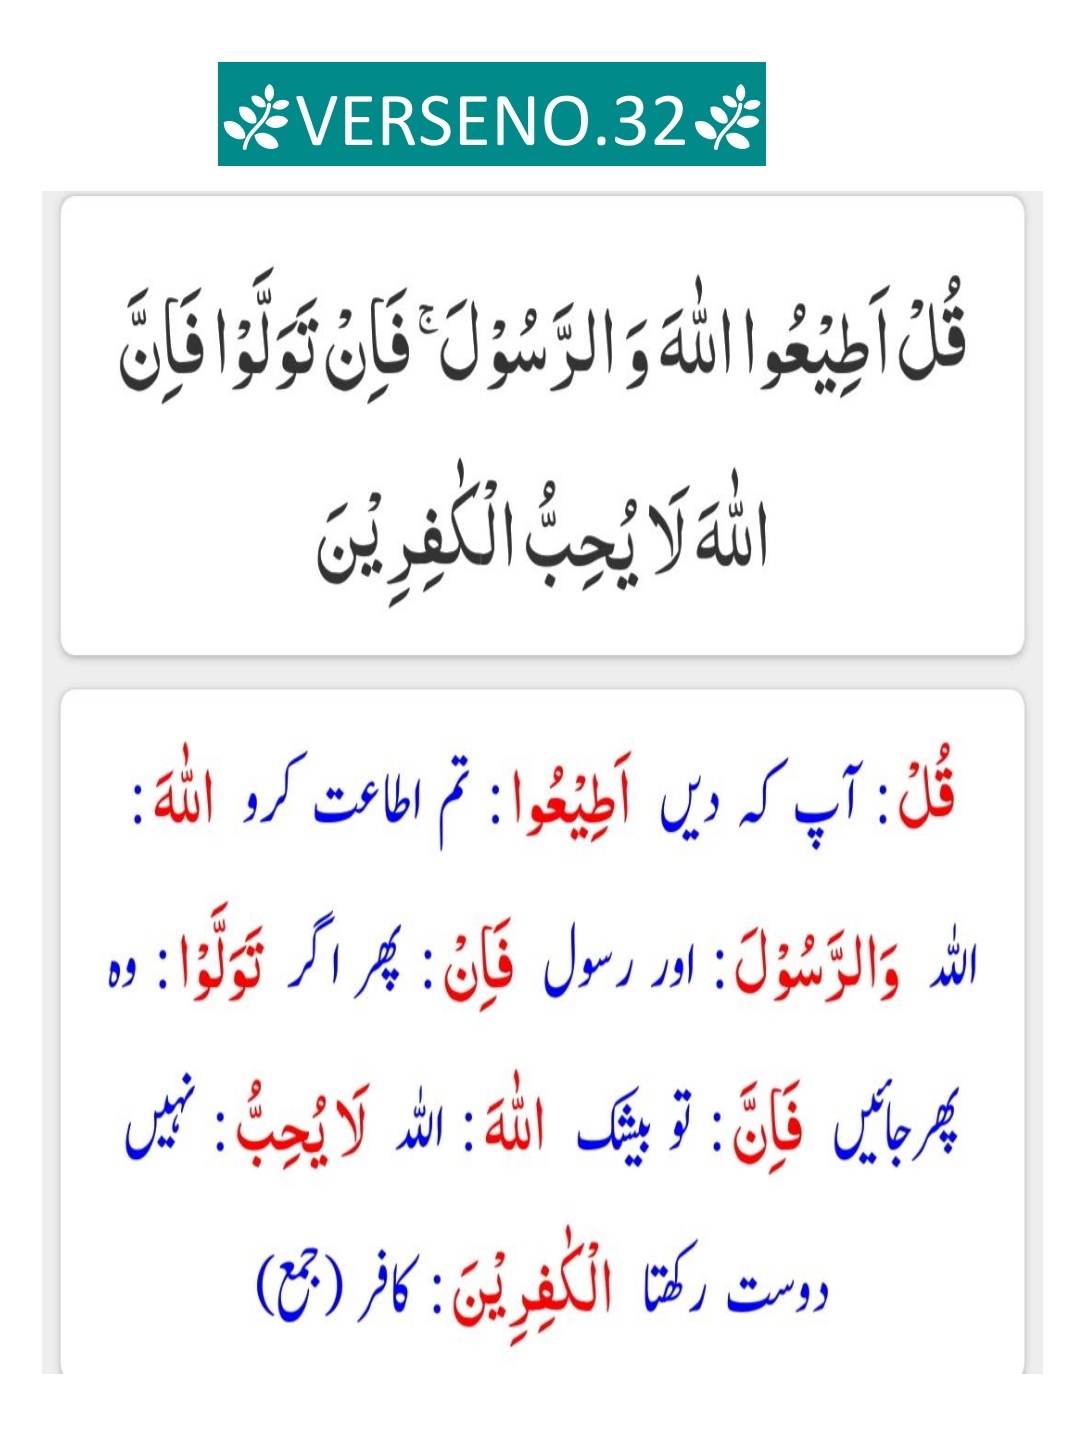 VERSENO.32
قُلْ اَطِیْعُوا اللّٰهَ وَ الرَّسُوْلَ ۚ فَاِنْ تَوَلَّوْا فَاِنَّ
اللّٰهَ لَا یُحِبُّ الْكٰفِرِیْنَ
قُلْ : آپ کہ دیں اَطِیْعُوا : تم اطاعت کرو اللّٰهَ :
اللہ وَالرَّسُوْلَ : اور رسول فَاِنْ : پھر اگر تَوَلَّوْا : وہ
پھرجائیں فَاِنَّ : تو بیشک اللّٰهَ : اللہ لَا یُحِبُّ : نہیں
دوست رکھتا الْكٰفِرِیْنَ : کافر (جمع)